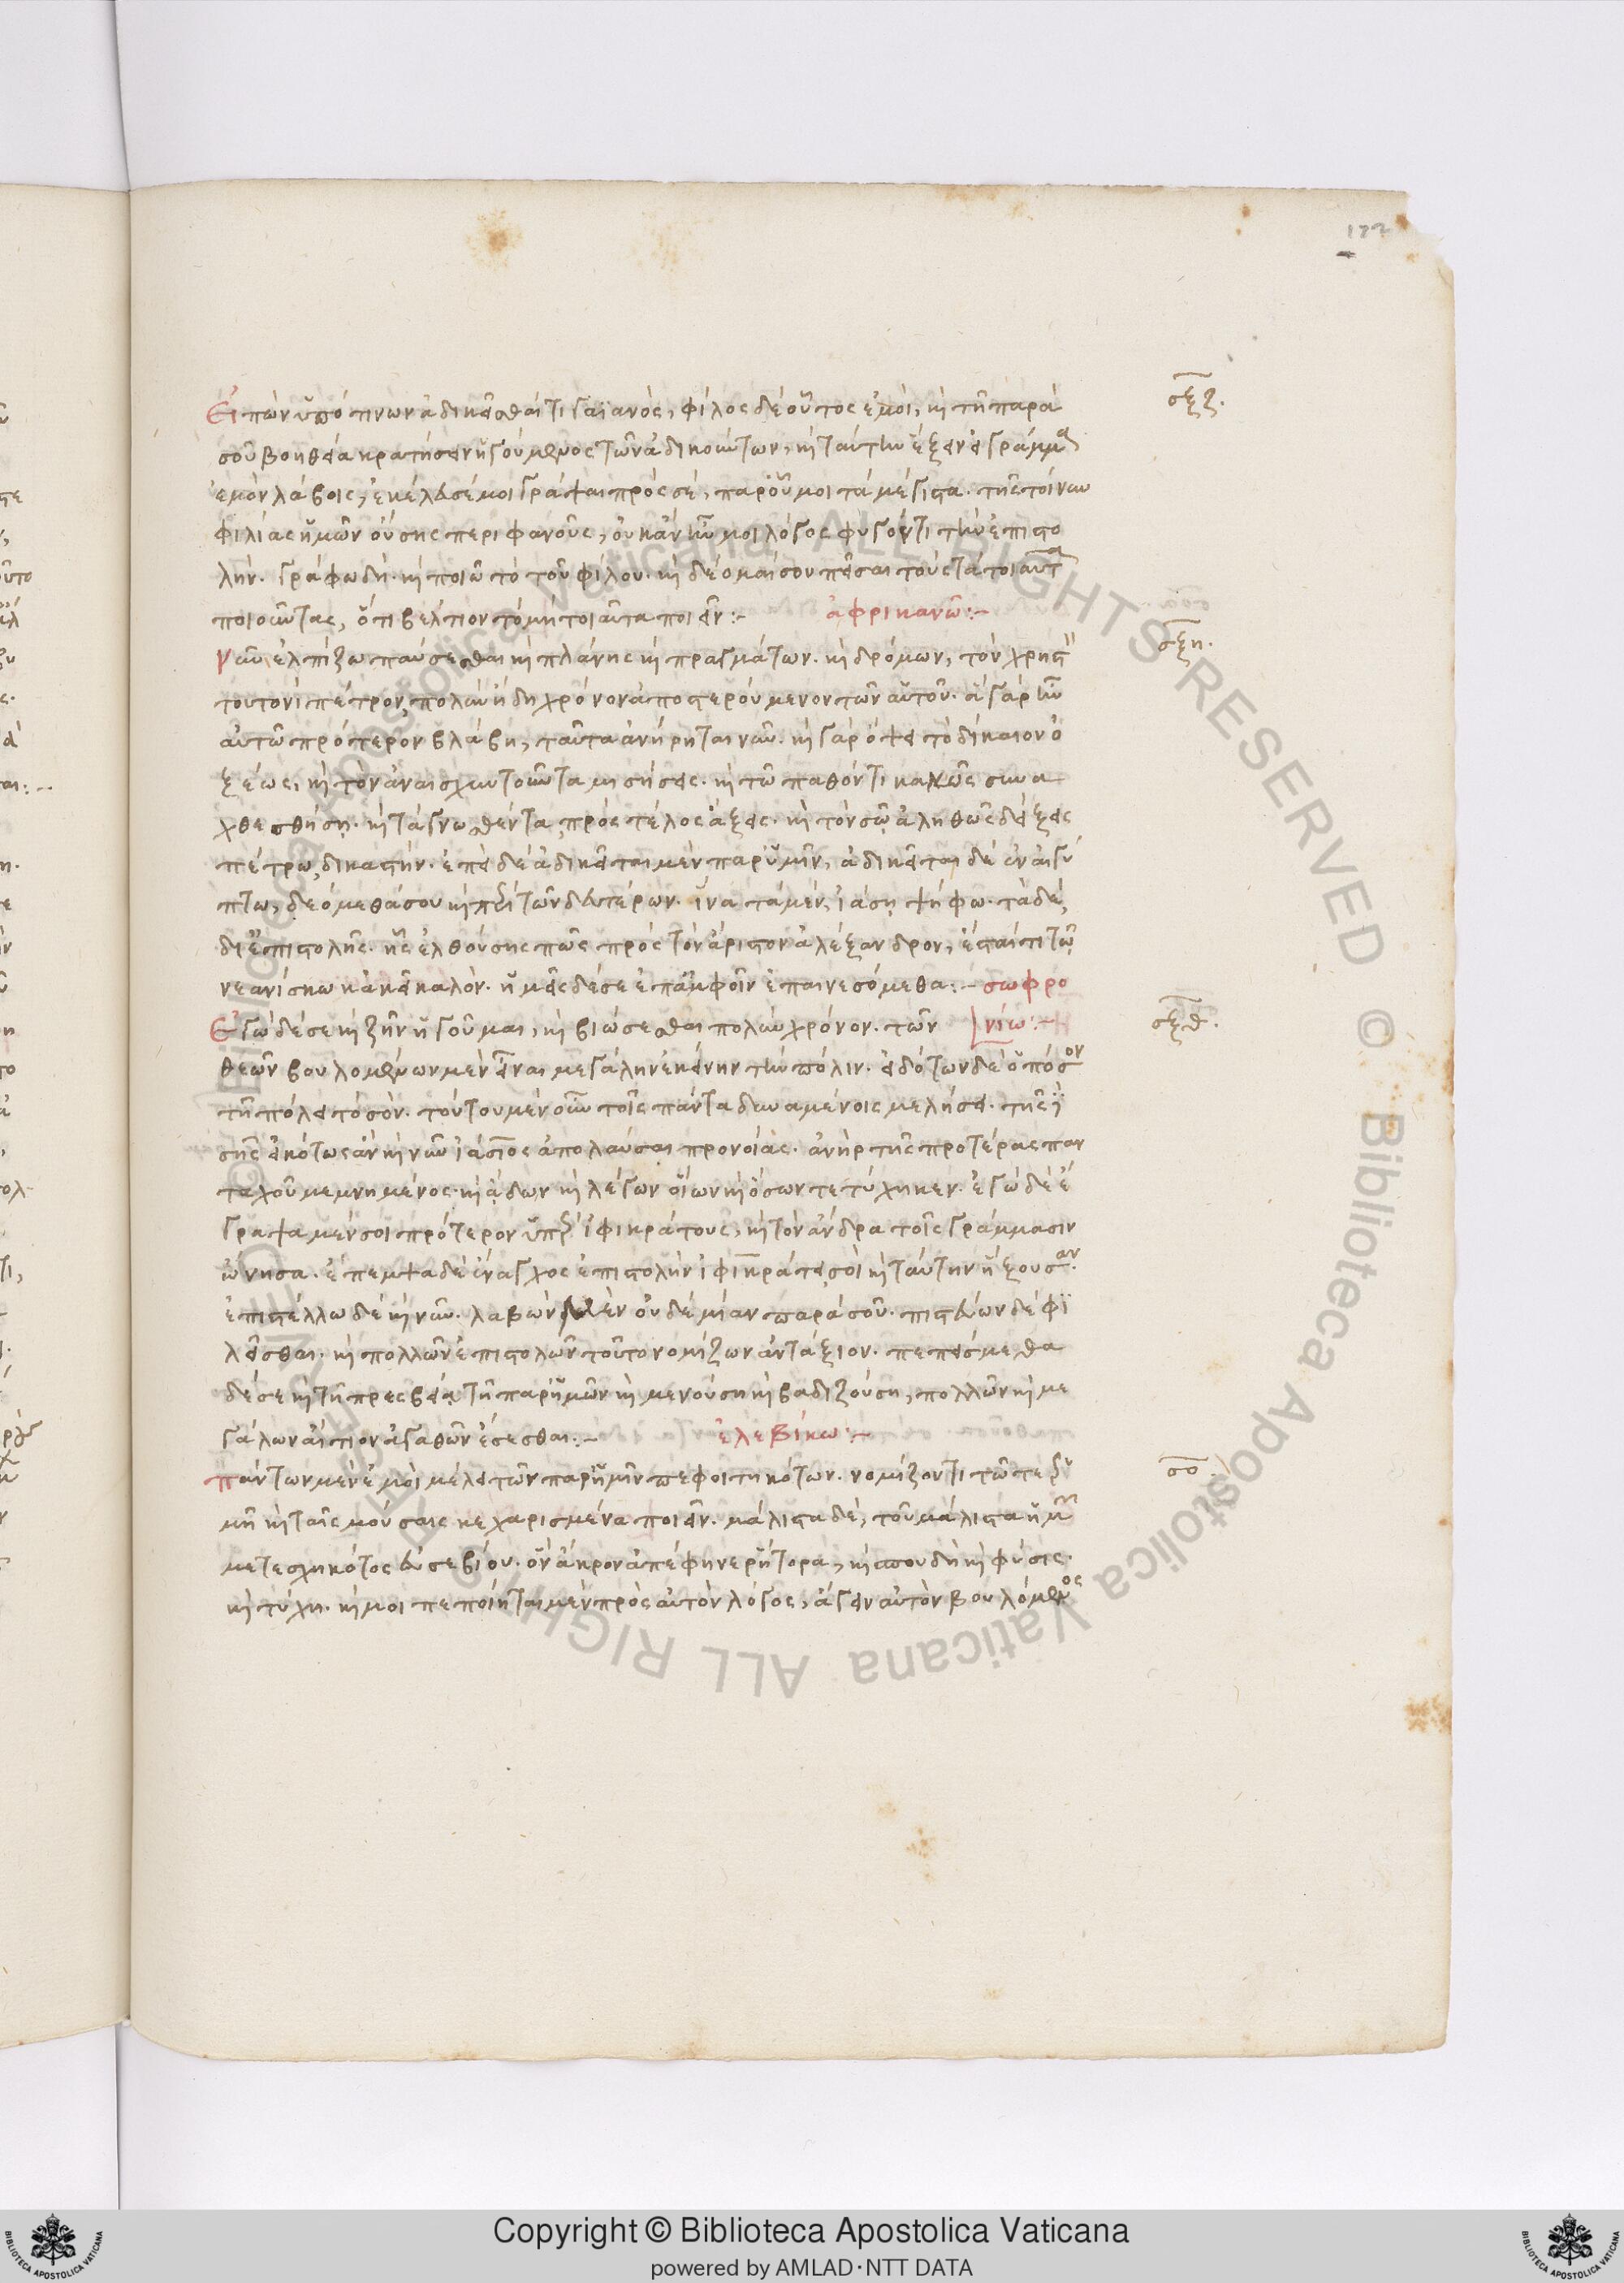 177
Εἰπὼν ὑπό τινων ἀδικεῖσθαί τι γαϊανὸς, φίλος δὲ οὗτος ἐμοὶ, καὶ τῆ παρὰ
σξζ.
σοῦ βοηθεία κρατήσειν ἡγούμενος τῶν ἀδικούντων, καὶ ταύτην ἕξειν εἰ γράμμα
ἐμὸν λάβοις, ἐκέλευσέ μοι γράψαι πρὸς σὲ, παρ' οὗ μοι τὰ μέγιστα. τῆς τοίνυν
φιλίας ἡμῶν οὔσης περιφανοῦς, οὐκ ἂν ἦν μοι λόγος φυγόντι τὴν ἐπιστο
λήν. γράφω δὴ. καὶ ποιῶ τὸ τοῦ φίλου. καὶ δέομαί σου πεῖσαι τοὺς τὰ τοιαῦτα
ποιοῦντας, ὅτι βέλτιον τὸ μὴ τοιαῦτα ποιεῖν :- ἀφρικανῶ :-
σξη.
νῦν ἐλπίζω παύσεσθαι καὶ πλάνης καὶ πραγμάτων. καὶ δρόμων, τὸν χρηστὸν
τουτονὶ πέτρον, πολὺν ἤδη χρόνον ἀποστερούμενον τῶν αὑτοῦ. ἃ γὰρ ἦν
αὐτῶ πρότερον βλάβη, ταῦτα ἀνήρηται νῦν. καὶ γὰρ ὄψει τὸ δίκαιον ὀ
ξέως, καὶ τὸν ἀναισχυντοῦντα μισήσεις. καὶ τῶ παθόντι κακῶς συνα
χθεσθήση. καὶ τὰ γνωσθέντα πρὸς τέλος ἄξεις. καὶ τὸν σῶ ἀληθῶς δείξεις
πέτρω δικαστήν. ἐπεὶ δὲ ἀδικεῖται μὲν παρ' ὑμῖν, ἀδικεῖται δὲ ἐν αἰγύ
πτω, δεόμεθά σου καὶ περὶ τῶν δευτέρων. ἵνα τὰ μὲν, ἰάση ψήφω. τὰ δὲ,
δι' ἐπιστολῆς. ἧς ἐλθούσης πως πρὸς τὸν ἄριστον ἀλέξανδρον, ἔσται τι τῶ
νεανίσκω κἀκεῖ καλόν. ἡμεῖς δέ σε ἐπ' ἀμφοῖν ἐπαινεσόμεθα :- σωφρο
νίω :-
σξθ.
Ἐγὼ δέ σε καὶ ζῆν ἡγοῦμαι, καὶ βιώσεσθαι πολὺν χρόνον. τῶν
θεῶν βουλομένων μὲν εἶναι μεγάλην ἐκείνην τὴν πόλιν. εἰδότων δὲ ὁπόσον
τῆ πόλει τὸ σόν. τούτου μὲν οὖν τοῖς πάντα δυναμένοις μελήσει. τῆς ἴ
σης εἰκότως ἂν καὶ νῦν ἰάσιος ἀπολαύσαι προνοίας. ἀνὴρ τῆς προτέρας παν
ταχοῦ μεμνημένος. καὶ ἄδων καὶ λέγων οἵων καὶ ὅσων τετύχηκεν. ἐγὼ δὲ ἔ
γραψα μέν σοι πρότερον ὑπὲρ ἰφικράτους, καὶ τὸν ἄνδρα τοῖς γράμμασιν
ὤνησα. ἔπεμψα δὲ ἔναγχος ἐπιστολὴν ἰφικράτει σοὶ καὶ ταύτην ἥξουσαν.
ἐπιστέλλω δὲ καὶ νῦν. λαβὼν μὲν οὐδὲ μίαν παρὰ σοῦ. πιστεύων δὲ φι
λεῖσθαι. καὶ πολλῶν ἐπιστολῶν τοῦτο νομίζων ἀντάξιον. πεπείσμεθα
δέ σε καὶ τῆ πρεσβεία τῆ παρ' ἡμῶν καὶ μενούση καὶ βαδιζούση, πολλῶν καὶ με
γάλων αἴτιον ἀγαθῶν ἔσεσθαι :- ἐλεβίκω :-
σο.
πάντων μὲν ἐμοὶ μέλει τῶν παρ' ἡμῖν πεφοιτηκότων. νομίζοντι τῶ τε ἑρ
μῆ καὶ ταῖς μούσαις κεχαρισμένα ποιεῖν. μάλιστα δὲ, τοῦ μάλιστα ἡμῶν
μετεσχηκότος εὐσεβίου. ὃν ἄκρον ἀπέφηνε ῥήτορα, καὶ σπουδὴ καὶ φύσις.
καὶ τύχη. καί μοι πεποίηται μὲν πρὸς αὐτὸν λόγος, ἄγειν αὐτὸν βουλόμενος
Copyright © Biblioteca Apostolica Vaticana
powered by AMLAD·NTT DATA